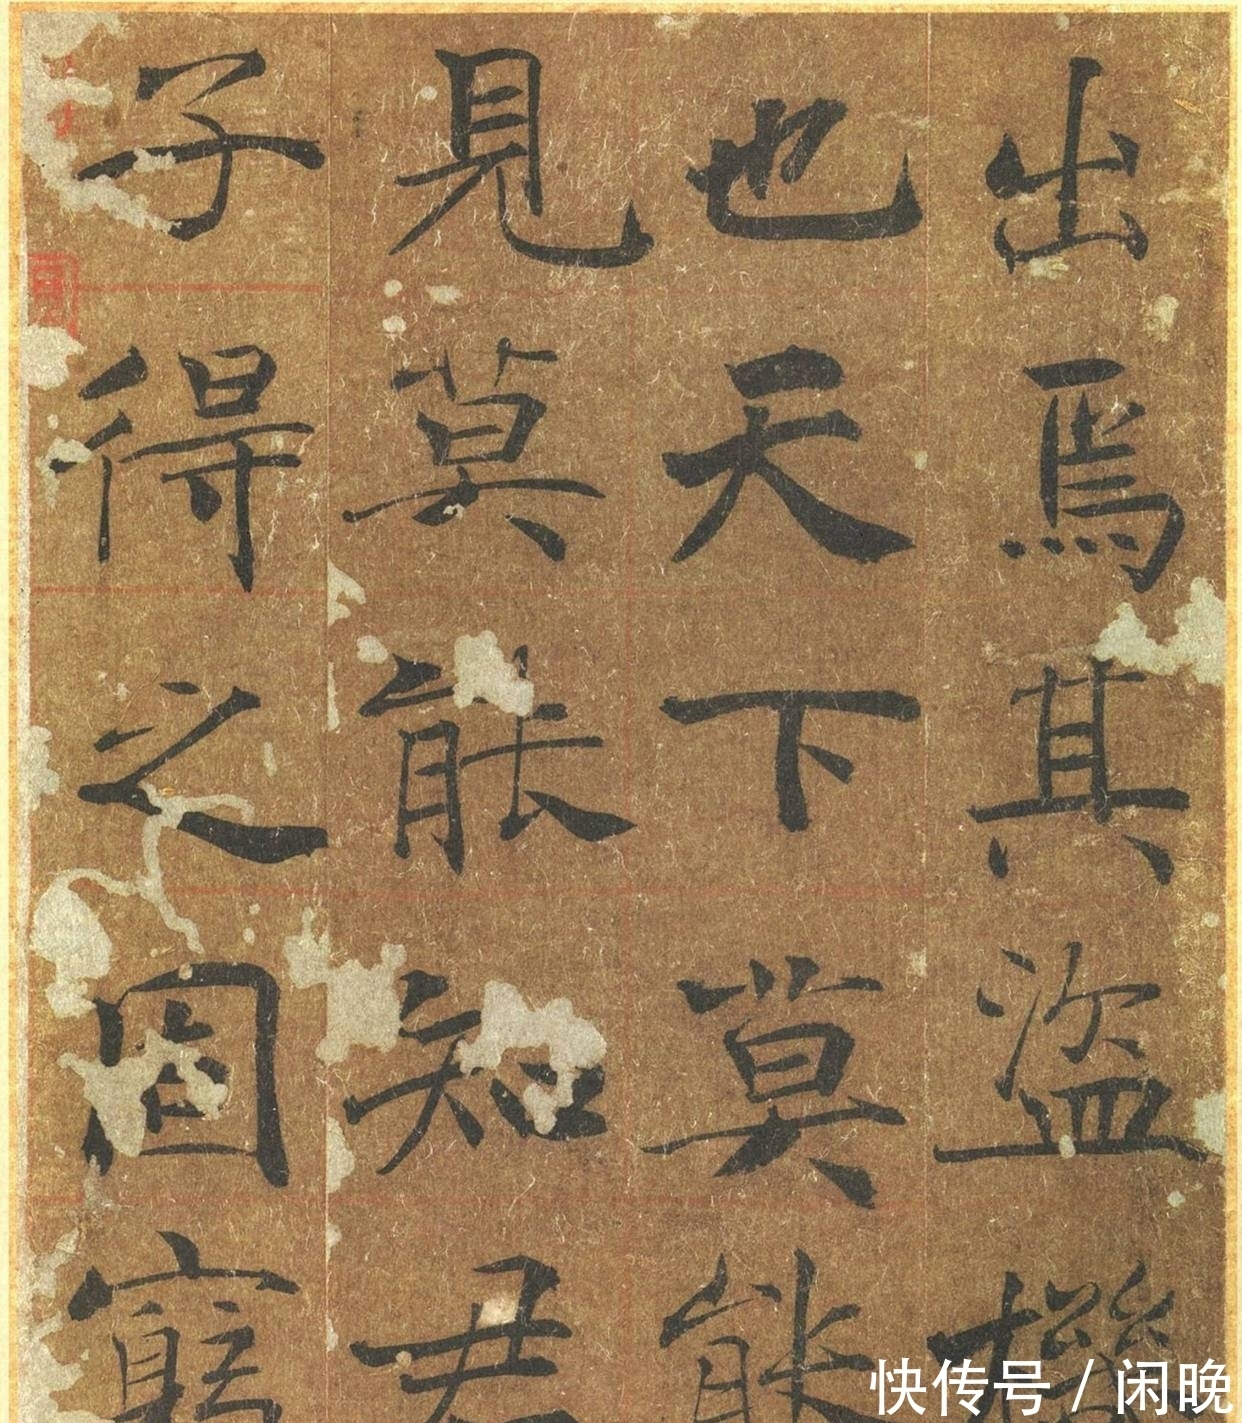 出焉其盜機
也天下莫能
見莫能知君
子得之固窮
快传号 / 闲晚